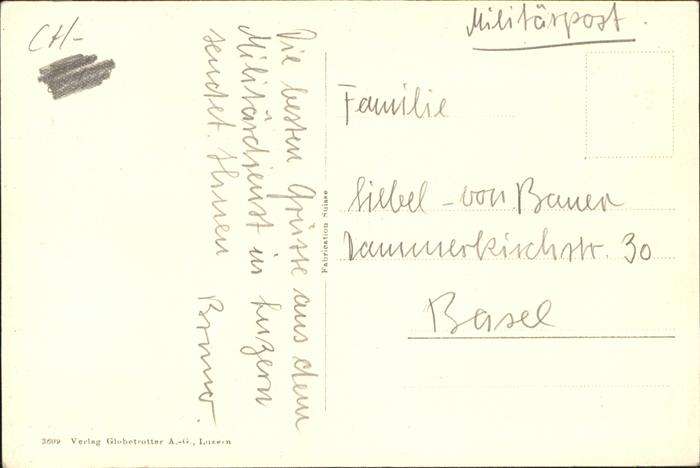 CH-
Militärpost.
Die besten Grüsse aus dem
Militärdienst in Luzern
sendet Ihnen
Bruno.
Fabrication Suisse
Familie
Siebel-von Bauer
Dammerkirchstr. 30
Basel
3609 Verlag Globetrotter A.-G., Luzern